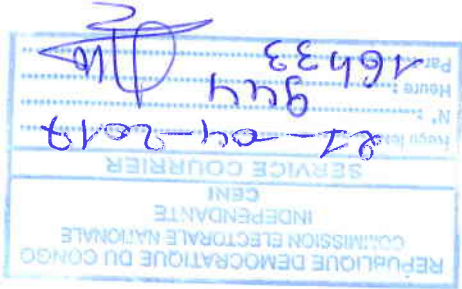 RÉPUBLIQUE DEMOCRATIQUE DU CONGO
COMMISSION ELECTORALE NATIONALE
INDEPENDANTE
CENI
SERVICE COURRIER
Reçu le 21-04-2017
N° : 944
Heure : 16h33
Par